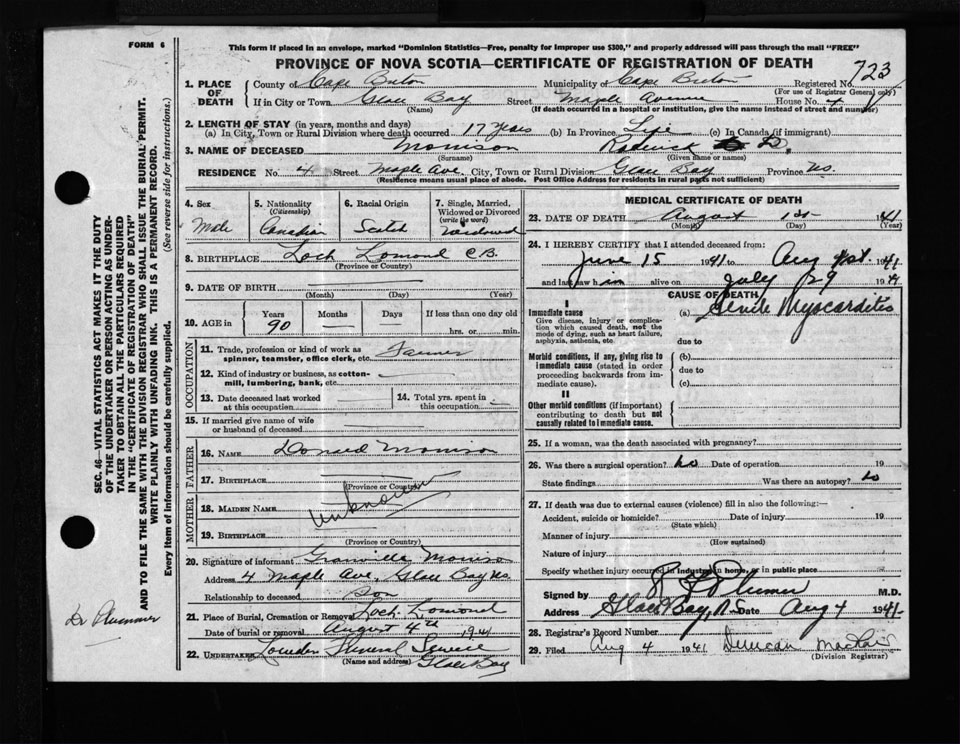 FORM 6
This form if placed in an envelope, marked "Dominion Statistics—Free, penalty for improper use $300," and properly addressed will pass through the mail "FREE"
PROVINCE OF NOVA SCOTIA—CERTIFICATE OF REGISTRATION OF DEATH
723
1. PLACE OF DEATH County of Cape Breton Municipality of Cape Breton Registered No.
(For use of Registrar General only)
If in City or Town Glace Bay Street Maple Avenue House No. 4
(Name) (If death occurred in a hospital or institution, give the name instead of street and number)
2. LENGTH OF STAY (in years, months and days)
(a) In City, Town or Rural Division where death occurred 17 years (b) In Province Life (c) In Canada (if immigrant)
3. NAME OF DECEASED Morrison Roderick D.
(Surname) (Given name or names)
RESIDENCE No. 4 Street Maple Ave. City, Town or Rural Division Glace Bay Province NS.
(Residence means usual place of abode. Post Office Address for residents in rural parts not sufficient)
4. Sex Male
5. Nationality (Citizenship) Canadian
6. Racial Origin Scotch
7. Single, Married, Widowed or Divorced (write the word) Widowed
8. BIRTHPLACE Loch Lomond C.B.
(Province or Country)
9. DATE OF BIRTH
(Month) (Day) (Year)
10. AGE in Years 90 Months — Days — If less than one day old hrs. or min.
OCCUPATION
11. Trade, profession or kind of work as spinner, teamster, office clerk, etc. Farmer
12. Kind of industry or business, as cotton-mill, lumbering, bank, etc.
13. Date deceased last worked at this occupation
14. Total yrs. spent in this occupation
15. If married give name of wife or husband of deceased
FATHER
16. NAME Donald Morrison
17. BIRTHPLACE
(Province or Country)
MOTHER
18. MAIDEN NAME unknown
19. BIRTHPLACE
(Province or Country)
20. Signature of informant Granville Morrison
Address 4 Maple Ave, Glace Bay NS
Relationship to deceased Son
21. Place of Burial, Cremation or Removal Loch Lomond
Date of burial or removal August 4th 1941
22. UNDERTAKER Funeral Service
(Name and address) Glace Bay
MEDICAL CERTIFICATE OF DEATH
23. DATE OF DEATH August 1st 1941
(Month) (Day) (Year)
24. I HEREBY CERTIFY that I attended deceased from:
June 15 1941 to Aug 1st 1941
and last saw him alive on July 29 1941
CAUSE OF DEATH
I
Immediate cause (a) Senile Myocarditis
Give disease, injury or complication which caused death, not the mode of dying, such as heart failure, asphyxia, asthenia, etc
due to
Morbid conditions, if any, giving rise to immediate cause (stated in order proceeding backwards from immediate cause).
(b)
due to
(c)
II
Other morbid conditions (if important) contributing to death but not causally related to immediate cause.
25. If a woman, was the death associated with pregnancy?
26. Was there a surgical operation? no Date of operation 19
State findings Was there an autopsy? no
27. If death was due to external causes (violence) fill in also the following:—
Accident, suicide or homicide? Date of injury 19
(State which)
Manner of injury
(How sustained)
Nature of injury
Specify whether injury occured in industry, in home, or in public place
Signed by Plummer M.D.
Address Glace Bay, N.S. Date Aug 4 1941
28. Registrar's Record Number
29. Filed Aug 4 1941 Duncan
(Division Registrar)
SEC. 46—VITAL STATISTICS ACT MAKES IT THE DUTY OF THE UNDERTAKER OR PERSON ACTING AS UNDERTAKER TO OBTAIN ALL THE PARTICULARS REQUIRED IN THE "CERTIFICATE OF REGISTRATION OF DEATH"
AND TO FILE THE SAME WITH THE DIVISION REGISTRAR WHO SHALL ISSUE THE BURIAL PERMIT.
WRITE PLAINLY WITH UNFADING INK. THIS IS A PERMANENT RECORD.
Every item of information should be carefully supplied. (See reverse side for instructions.)
Dr Plummer